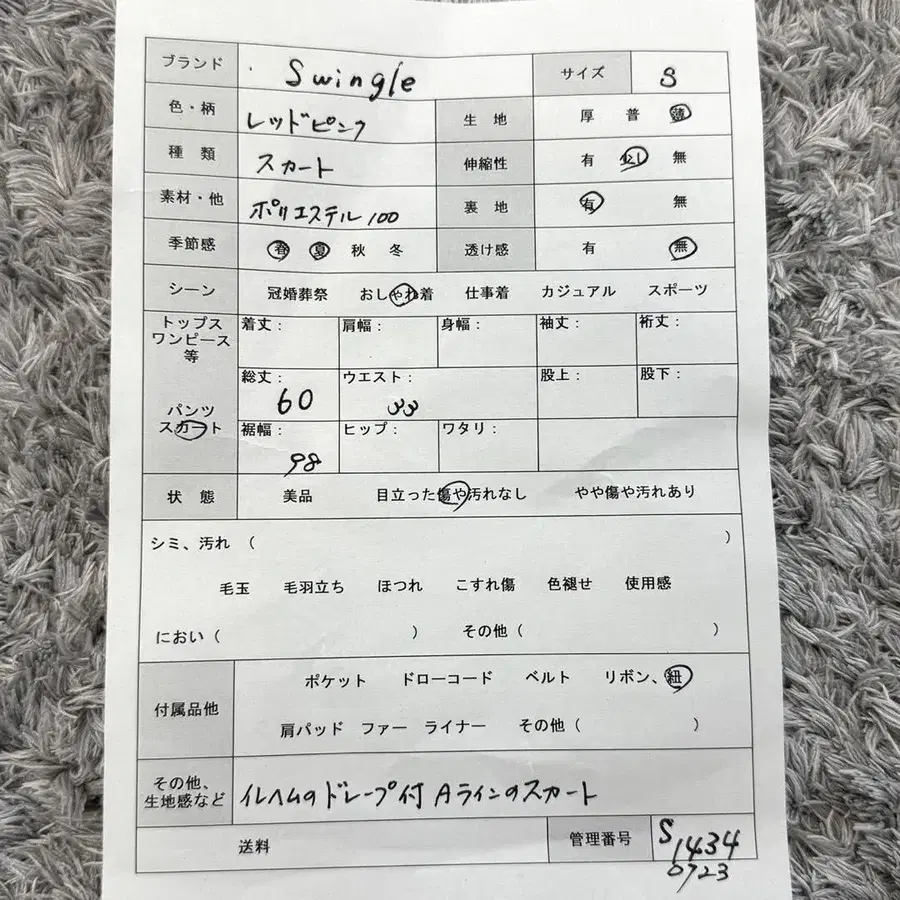 ブランド Swingle サイズ S
色・柄 レッドピンク 生地 厚 普 薄
種類 スカート 伸縮性 有 少し 無
素材・他 ポリエステル100 裏地 有 無
季節感 春 夏 秋 冬 透け感 有 無
シーン 冠婚葬祭 おしゃれ着 仕事着 カジュアル スポーツ
トップス
ワンピース
等
着丈: 肩幅: 身幅: 袖丈: 裄丈:
総丈: 60 ウエスト: 33 股上: 股下:
パンツ
スカート
裾幅: 98 ヒップ: ワタリ:
状態 美品 目立った傷や汚れなし やや傷や汚れあり
シミ、汚れ ( )
毛玉 毛羽立ち ほつれ こすれ傷 色褪せ 使用感
におい ( ) その他 ( )
付属品他 ポケット ドローコード ベルト リボン、紐
肩パッド ファー ライナー その他 ( )
その他、
生地感など
イレヘムのドレープ付 Aラインのスカート
送料 管理番号 S1434
0723